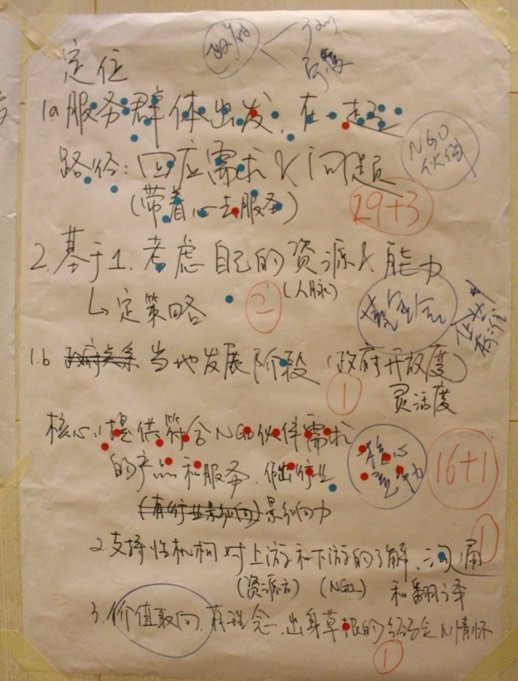 定位
1a 服务群体出发,在一起
路径:回应需求&问题
NGO
伙伴
(带着心去服务)
29+3
2.基于1.考虑自己的资源&能力
(人脉)
↳定策略
2
1.b 当地发展阶段(政府开放度)
灵活度
1
核心 1.提供符合NGO伙伴需求
的产品和服务.作出行业
核心
16+1
(有行业影响力)影响力
1
2.支持性机构对上游和下游的了解、沟通
(资源方)(NGO) 和翻译
3.价值取向.有理念.出身草根的 NGO情怀
1